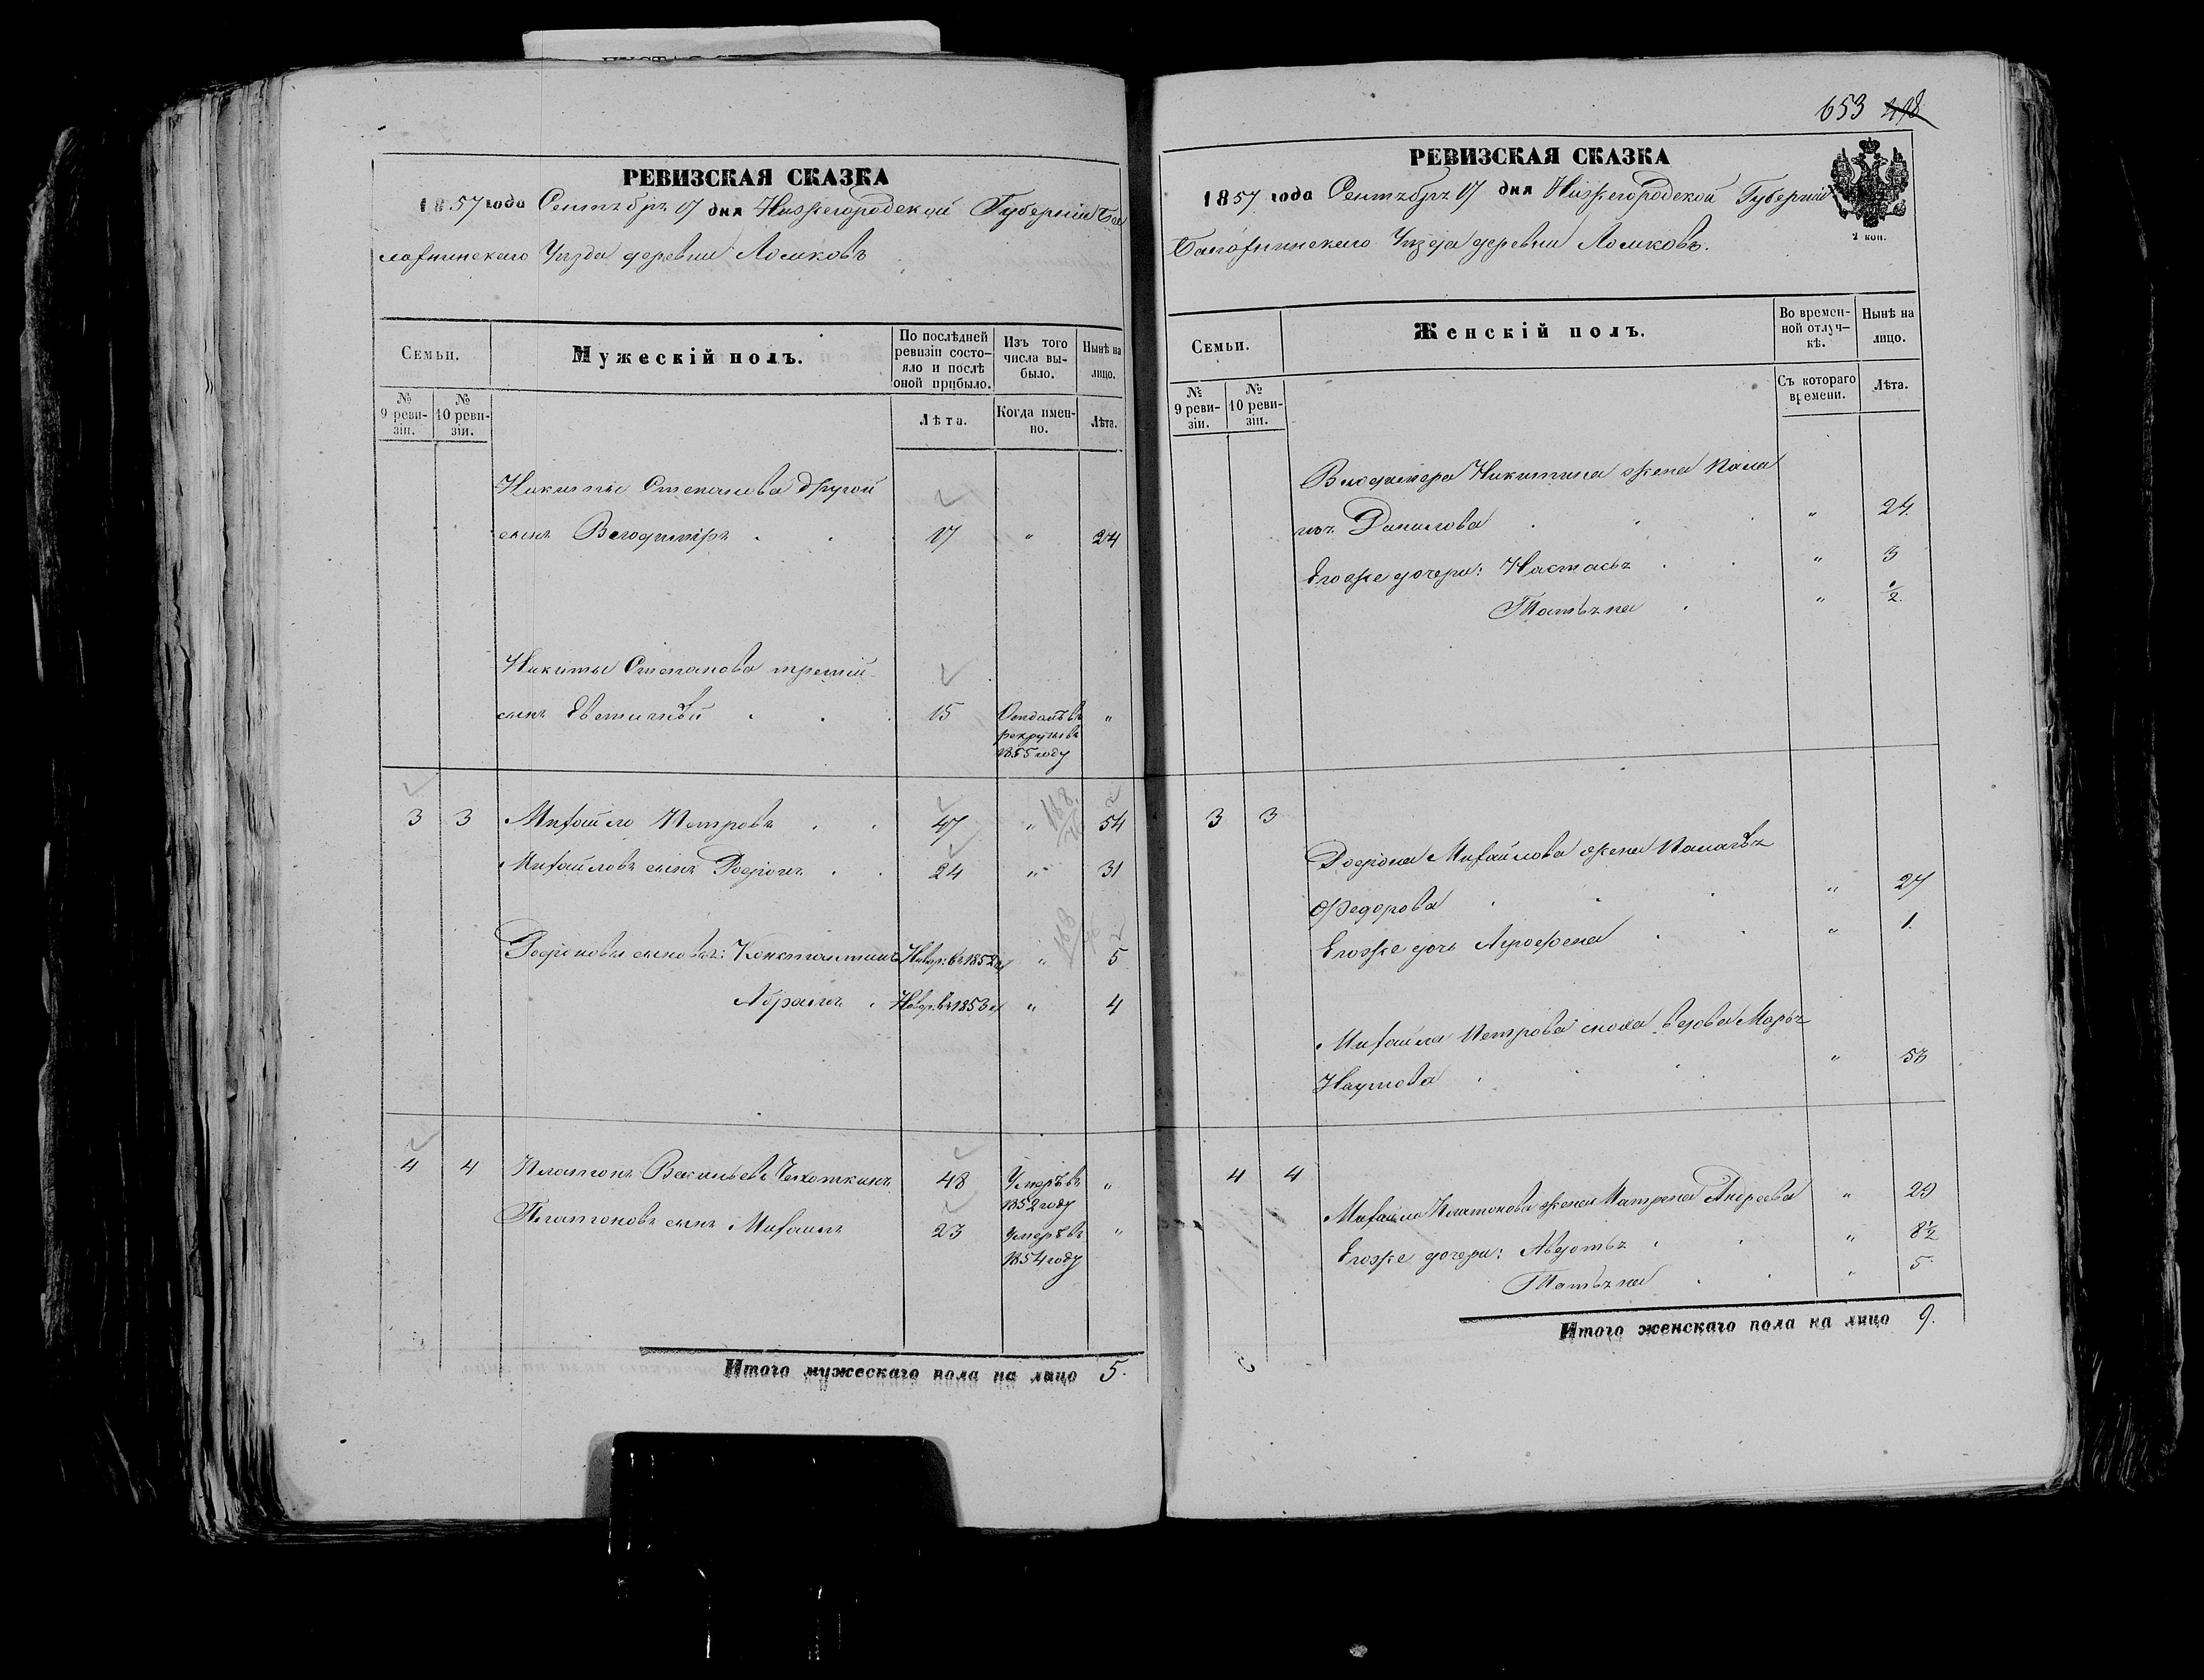 РЕВИЗСКАЯ СКАЗКА
1857 года Сентября 17 дня Нижегородской Губерніи Ба
лахнинскаго Уѣзда деревни Ломковъ
Семьи.
Мужескій полъ.
По послѣдней ревизіи состо-
яло и послѣ
оной прибыло.
Изъ того
числа вы-
было.
Нынѣ на
лицо.
№
9 реви-
зіи.
№
10 реви-
зіи.
Лѣта.
Когда имен-
но.
Лѣта.
Никиты Степанова другой
сынъ Владимiръ 17 " 24
Никиты Степанова третій
сынъ Евстигнѣй 15 Отданъ въ "
рекруты въ
1855 году
3 3 Михайло Петровъ 47 " 54
Михайловъ сынъ Родіонъ 24 " 31
Родіоновы сыновья: Константинъ 1852 " 5
Абрамъ 1853 " 4
4 4 Платонъ Васильевъ 48 Умеръ въ "
1852 году
Платоновъ сынъ Михаилъ 23 Умеръ въ "
1854 году
Итого мужескаго пола на лицо 5.
653 498
РЕВИЗСКАЯ СКАЗКА
1857 года Сентября 17 дня Нижегородской Губерніи
2 коп.
Балахнинскаго Уѣзда деревни Ломковъ.
Семьи.
Женскій полъ.
Во времен-
ной отлуч-
кѣ.
Нынѣ на
лицо.
№
9 реви-
зіи.
№
10 реви-
зіи.
Съ котораго
времени.
Лѣта.
Владимера Никитина жена Пала
Данилова " 24.
Егоже дочери: Настасья " 3
Татьяна " ½.
3 3
Родіона Михайлова жена Палагѣя
Федорова " 27
Егоже дочь Агрофена " 1.
Михайла Петрова сноха вдова Марья
Наумова " 53
4 4
Михайла Платонова жена Матрена Андреева " 29
Егоже дочери: Авдотья " 8½
Татьяна " 5.
Итого женскаго пола на лицо 9.